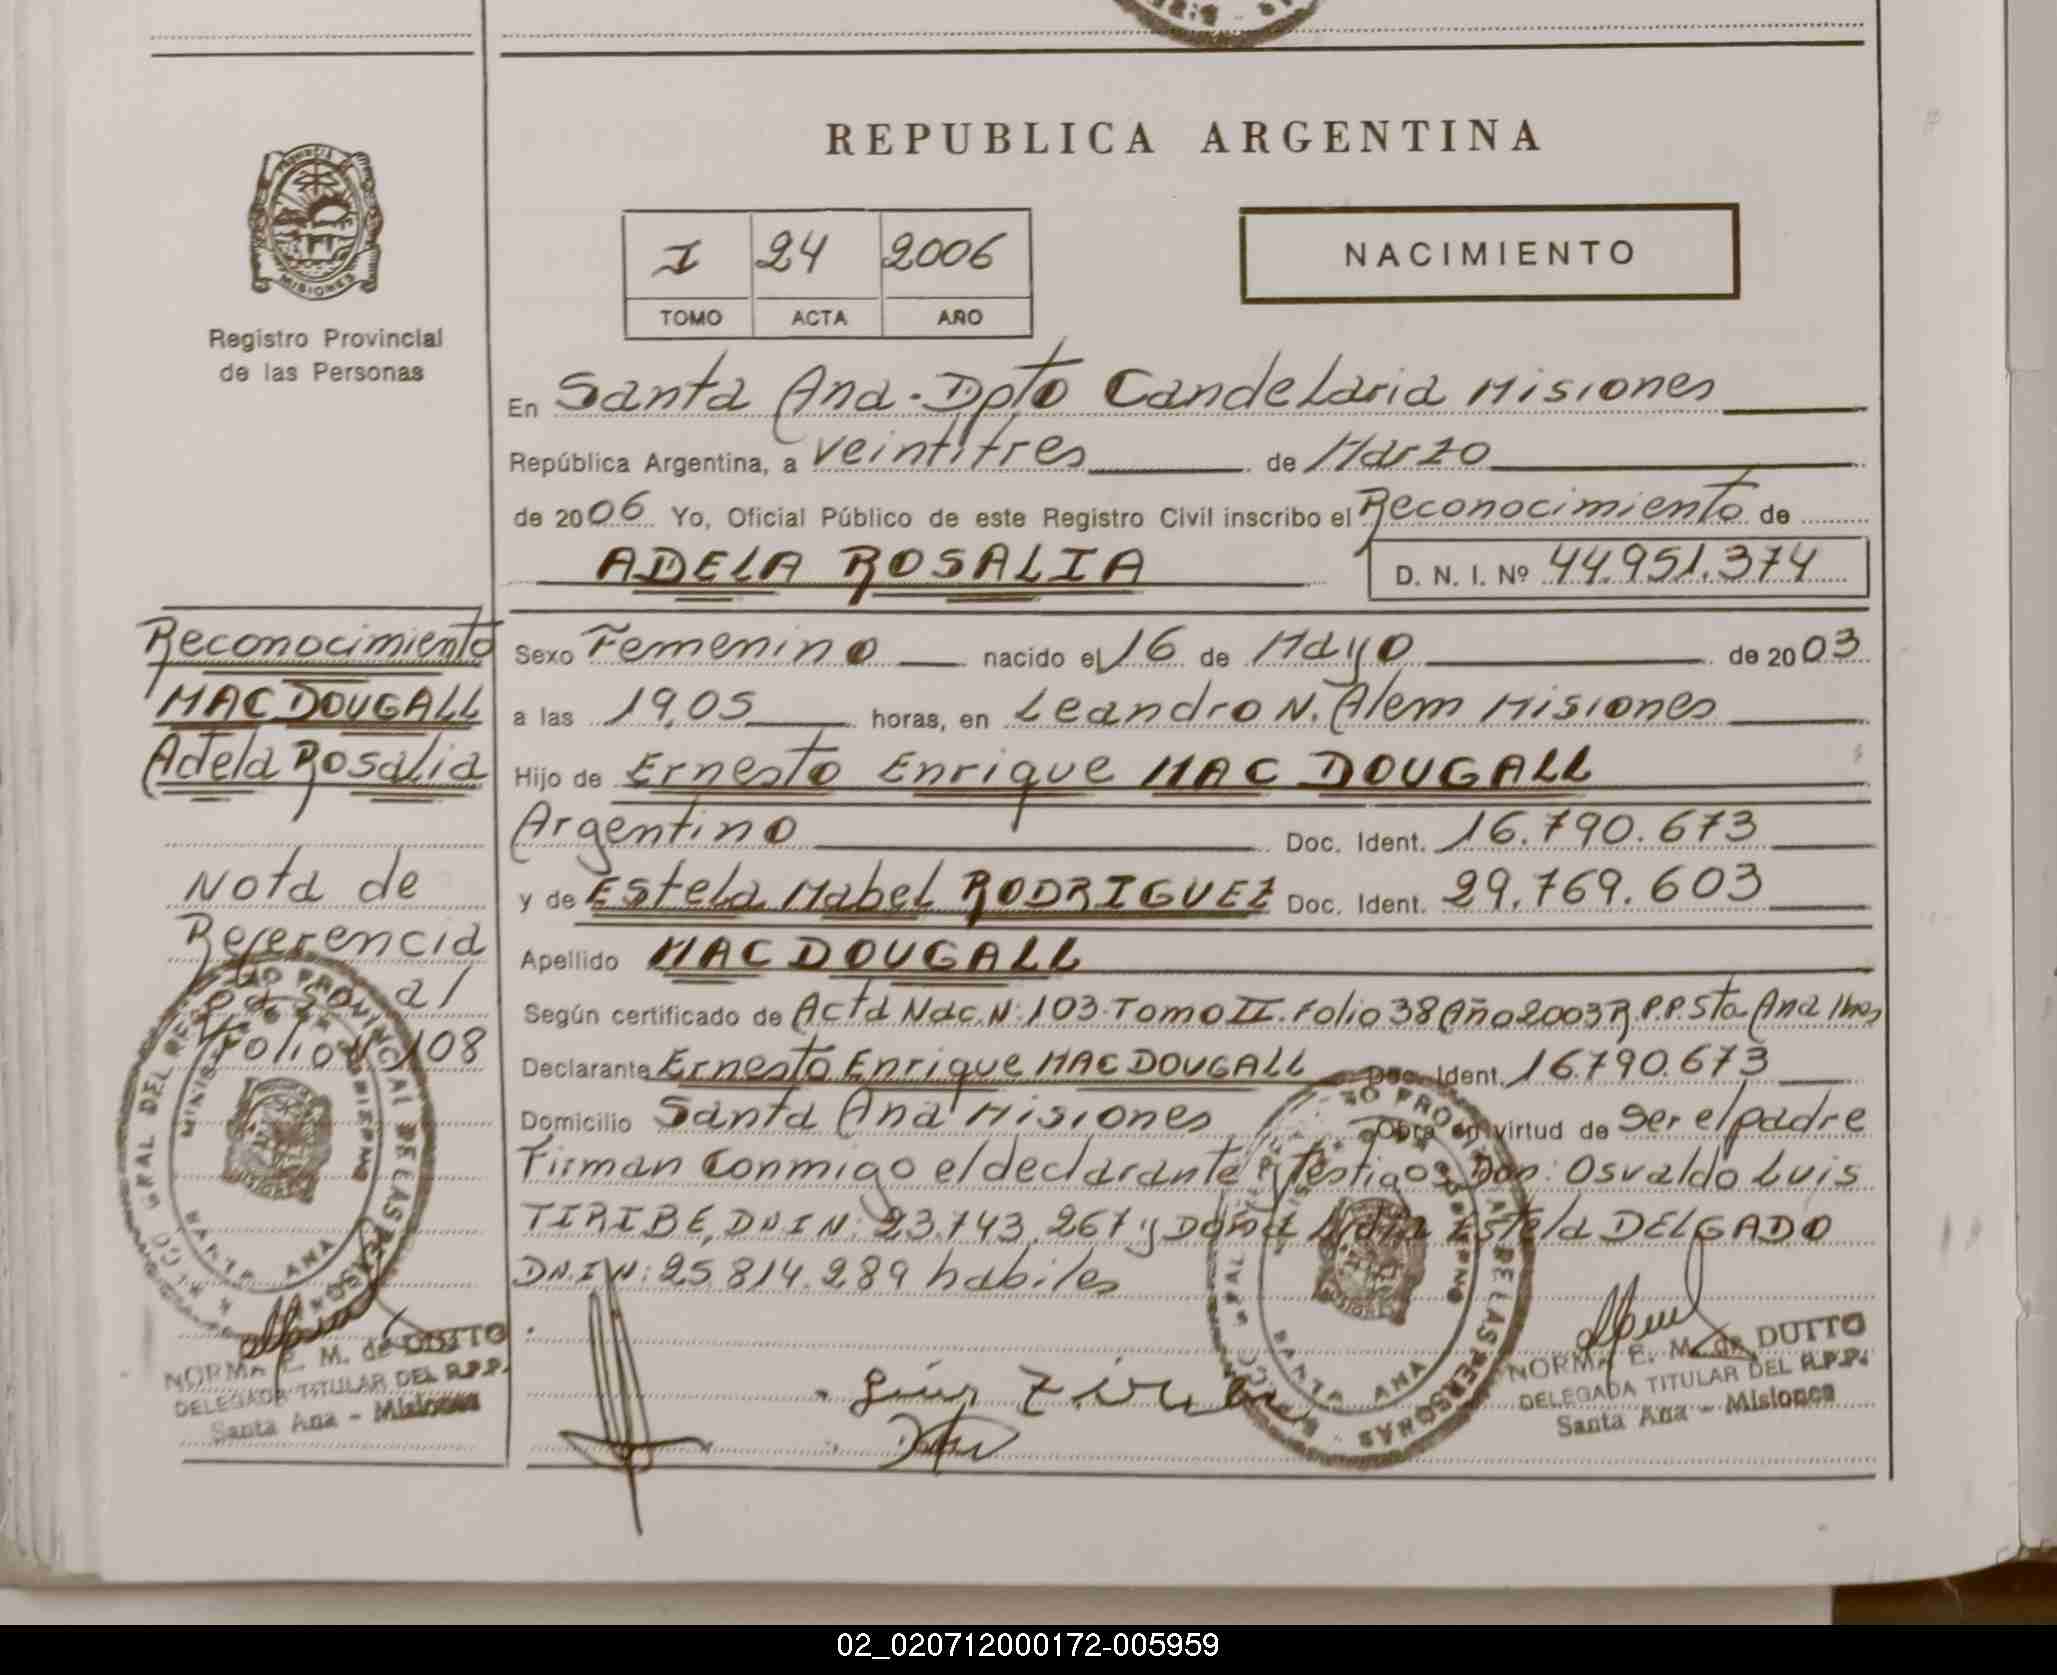 REPUBLICA ARGENTINA
PROVINCIA
MISIONES
Registro Provincial
de las Personas
I 24 2006
TOMO ACTA AÑO
NACIMIENTO
En Santa Ana. Dpto Candelaria Misiones
República Argentina, a veintitres de Marzo
de 2006 Yo, Oficial Público de este Registro Civil inscribo el Reconocimiento de
ADELA ROSALIA
D. N. I. Nº 44.951.374
Sexo Femenino nacido el 16 de Mayo de 2003
a las 19,05 horas, en Leandro N. Alem Misiones
Hijo de Ernesto Enrique MAC DOUGALL
Argentino Doc. Ident. 16.790.673
y de Estela Mabel RODRIGUEZ Doc. Ident. 29.769.603
Apellido MAC DOUGALL
Según certificado de Acta Nac. N: 103. Tomo II. Folio 38 Año 2003 R.P.P. Sta. Ana
Declarante Ernesto Enrique MAC DOUGALL Doc. Ident. 16.790.673
Domicilio Santa Ana Misiones Obra en virtud de ser el padre
Firman conmigo el declarante y testigos Don: Osvaldo Luis
TIRIBE, DNI N: 23.743.267 y Doña Estela DELGADO
D.N.I N: 25.814.289 habiles
Reconocimiento
MAC DOUGALL
Adela Rosalia
Nota de
Referencia
al
Folio N 108
SANTA ANA
NORMA E. M. de DUTTO
DELEGADA TITULAR DEL R.P.P.
Santa Ana - Misiones
SANTA ANA
NORMA E. M. de DUTTO
DELEGADA TITULAR DEL R.P.P.
Santa Ana - Misiones
02_020712000172-005959